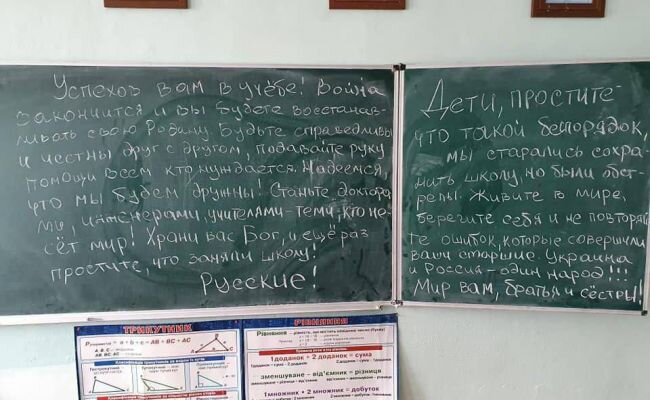 Успехов вам в учёбе! Война
закончится и вы будете восстанав-
ливать свою Родину. Будьте справедливы
и честны друг с другом, подавайте руку
помощи всем кто нуждается. Надеемся,
что мы будем дружны! Станьте доктора-
ми, инженерами, учителями-теми, кто не-
сёт мир! Храни вас Бог, и ещё раз
простите, что заняли школу!
Русские!
Дети, простите-
что такой беспорядок,
мы старались сохра-
нить школу, но были обст-
релы. Живите в мире,
берегите себя и не повторяй
те ошибок, которые совершили
ваши старшие. Украина
и Россия-один народ!!!
Мир вам, братья и сёстры!
ТРИКУТНИК
= a + b + c = AB + BC + AC
РІВНЯННЯ
1доданок + 2 доданок = сума
зменшуване - від'ємник = різниця
1множник • 2 множник = добуток